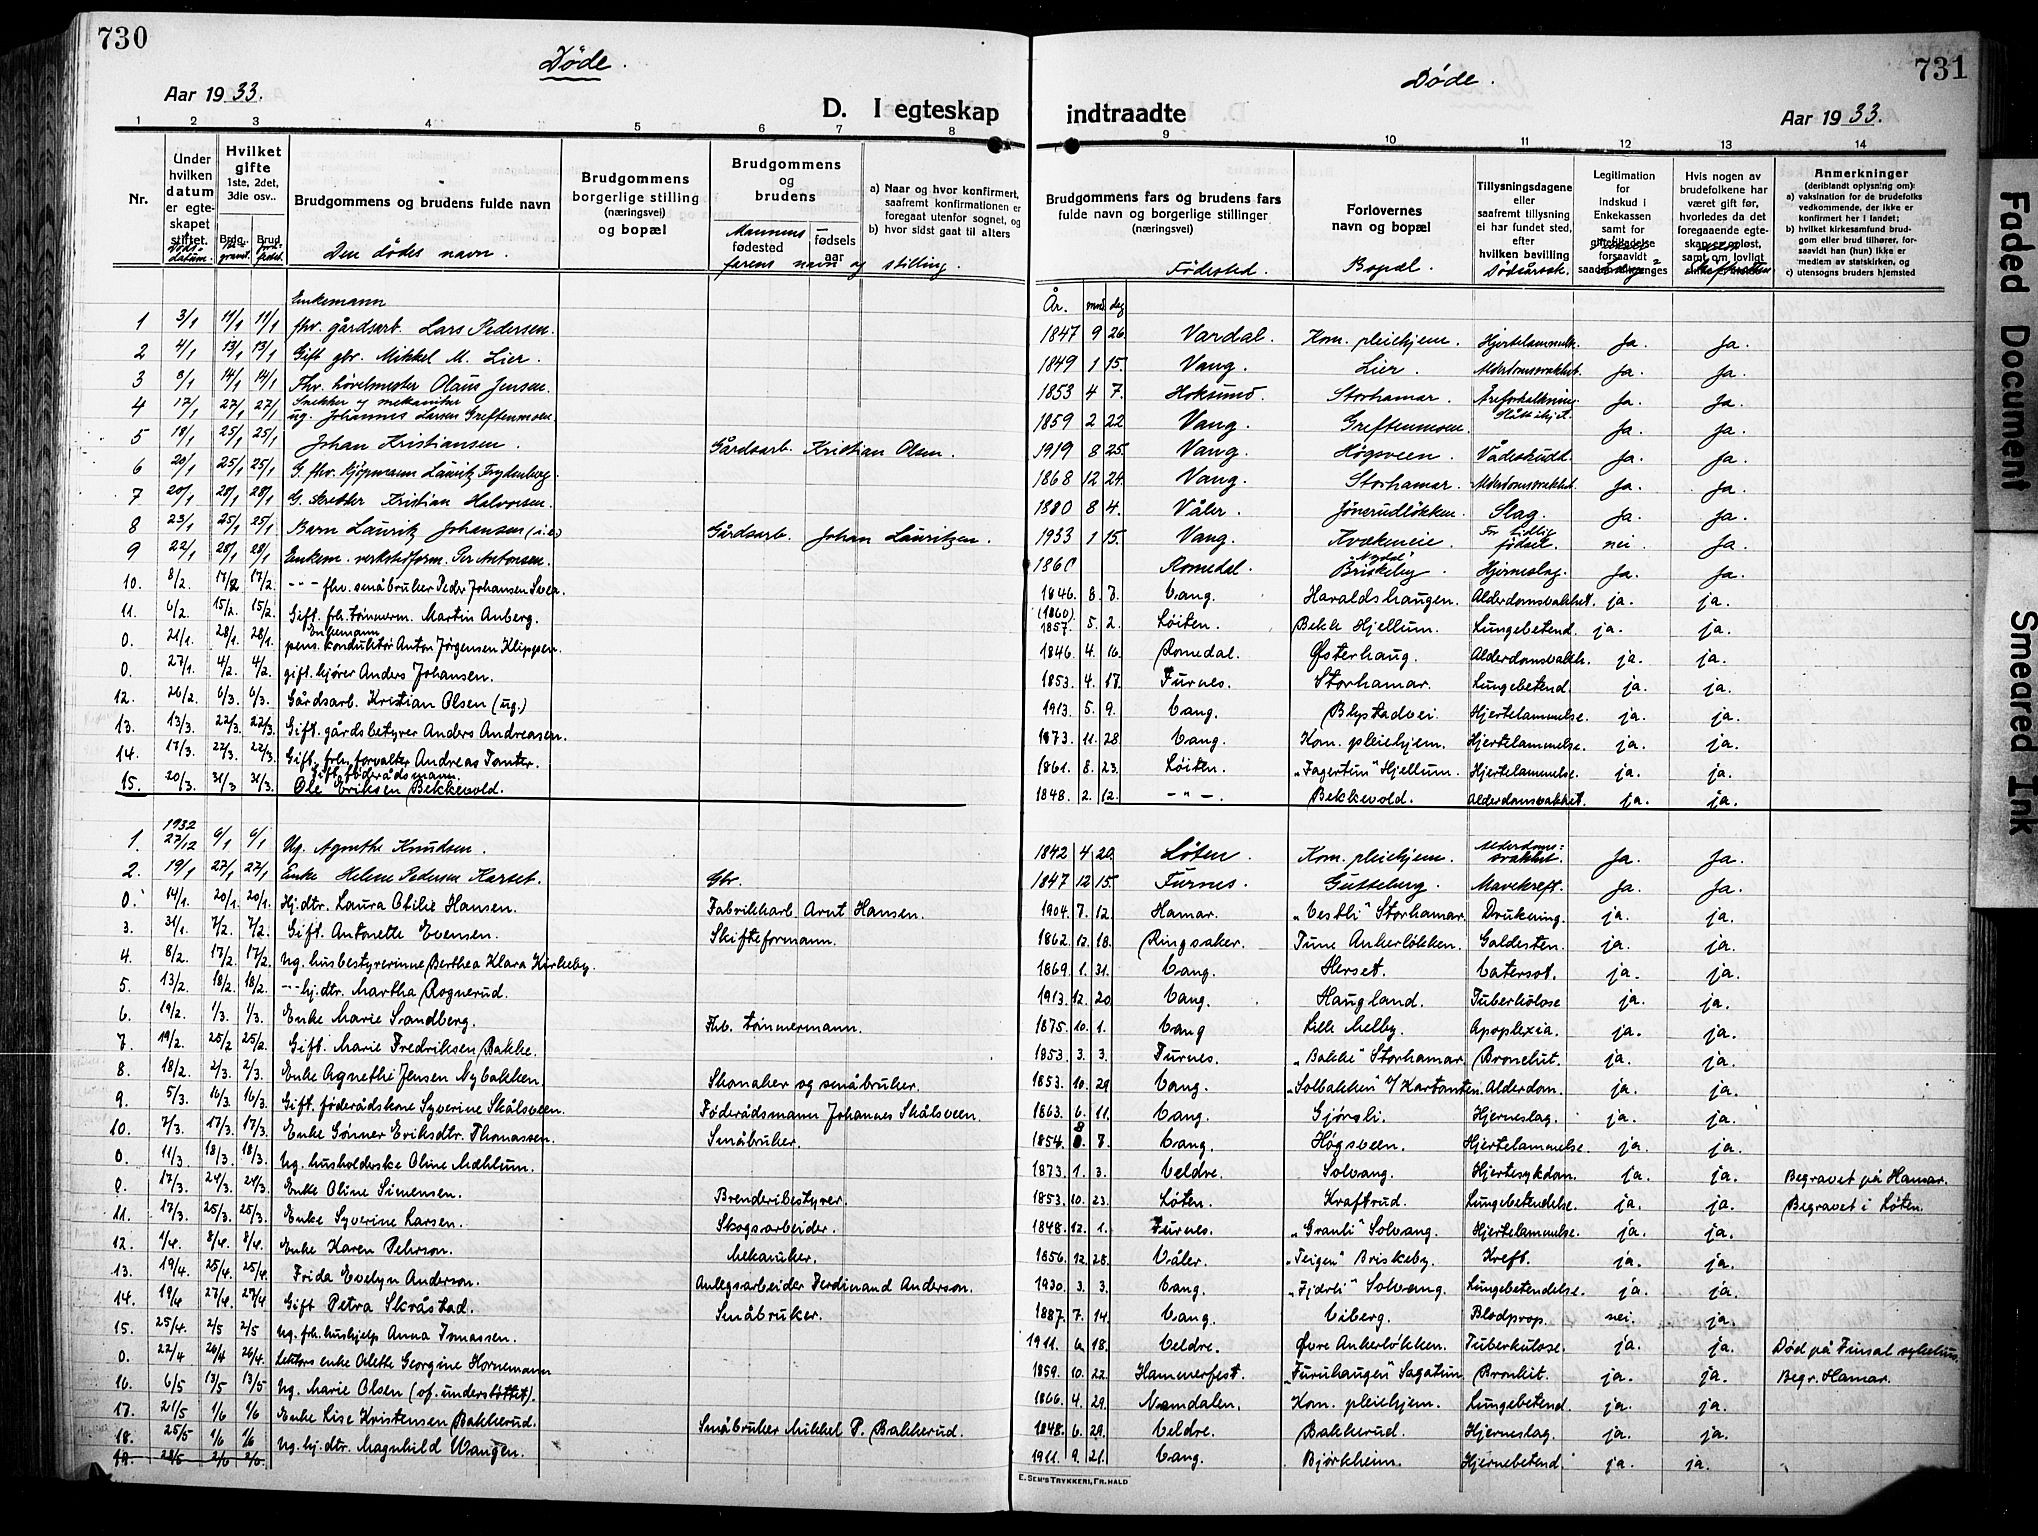 730
Døde.
Aar 1933.
D. I egteskap
1 2 3 4 5 6 7 8
Nr.
Under hvilken datum er egteskapet stiftet.
Hvilket gifte 1ste, 2det, 3die osv..
Brudgommens og brudens fulde navn
Den dødes navn.
Brudgommens borgerlige stilling (næringsvei) og bopæl
Brudgommens og brudens
fødested
fødsels aar
a) Naar og hvor konfirmert, saafremt konfirmationen er foregaat utenfor sognet, og
b) hvor sidst gaat til alters
farens navn og stilling.
Enkemann
1 3/1 11/1 11/1 fhv. gårdsarb. Lars Pedersen.
2 4/1 13/1 13/1 Gift gbr. Mikkel M. Lier.
3 8/1 14/1 14/1 Fhv. høvelmester Olaus Jensen.
Snekker og mekaniker
4 17/1 27/1 27/1 ug. Johannes Larsen Greftenmoen
5 18/1 25/1 25/1 Johan Kristiansen. Gårdsarb. Kristian Olsen.
6 20/1 25/1 25/1 G. fhv. kjøpmann Lauritz Frydenberg.
7 20/1 28/1 28/1 G. skredder Kristian Halvorsen.
8 23/1 25/1 25/1 Barn Lauritz Johansen (i.e.) Gårdsarb. Johan Lauritzen.
9 22/1 28/1 28/1 Enkem. verkstedform. Per Antonsen.
10. 8/2. 17/2 17/2. --- fhv. småbruker Peder Johansen Svea.
11. 6/2. 15/2. 15/2. Gift. frh. tømmerm. Martin Anberg.
Enkemann
0. 21/1. 28/1. 28/1. pens. konduktør Anton Jørgensen Klippen.
0. 27/1. 4/2. 4/2. gift. kjører Anders Johansen.
12. 26/2. 6/3. 6/3. Gårdsarb. Kristian Olsen (ug.)
13. 13/3. 22/3. 22/3. Gift. gårdsbetyrer Anders Andreasen.
14. 17/3. 22/3. 22/3. Gift. frh. forvalter Andreas Tomter.
Gift. føderådsmann.
15. 20/3. 31/3 31/3. Ole Eriksen Bekkevold.
1932
1. 27/12 6/1 6/1 Ug. Agnethe Knudsen.
2. 19/1 27/1 27/1 Enke Helene Pedersen Karset. Gbr.
0. 14/1. 20/1. 20/1. Hj.dtr. Laura Otilie Hansen. Fabrikkarb. Arnt Hansen.
3. 31/1. 7/2. 7/2. Gift. Antonette Evensen. Skifteformann.
4. 8/2. 17/2. 17/2. Ug. husbestyrerinne Berthea Klara Kirkeby.
5. 13/2. 18/2. 18/2. --- hj.dtr. Martha Rognerud.
6. 19/2. 1/3. 1/3. Enke Marie Sandberg. Frh. tømmermann.
7. 19/2. 25/2 25/2. Gift. Marie Fredriksen Bakke.
8. 18/2. 2/3. 2/3. Enke Agnethe Jensen Nybakken. Skomaker og småbruker.
9. 5/3. 16/3. 16/3. Gift. føderådskone Syverine Skålsveen. Føderådsmann Johannes Skålsveen.
10. 7/3. 17/3. 17/3. Enke Gønner Eriksdtr. Thomassen. Småbruker.
0. 11/3. 18/3. 18/3. Ug. husholderske Oline Mæhlum.
0. 17/3. 24/3. 24/3. Enke Oline Simensen. Brenderibestyrer.
11. 17/3. 25/3. 25/3. Enke Syverine Larsen. Skogsarbeider.
12. 1/4. 8/4. 8/4. Enke Karen Pehrson. Mekaniker.
13. 19/4. 25/4. 25/4 Frida Evelyn Anderson. Anlegsarbeider Ferdinand Anderson.
14. 19/4 27/4. 27/4. Gift Petra Skråstad. Småbruker.
15. 25/4. 2/5 2/5 Ug. frh. hushjelp Anna Tomassen.
0. 22/4 26/4 26/4. Lektors enke Odette Georgine Hornemann
16. 6/5 13/5 13/5 Ug. Marie Olsen (of. understøttet).
17. 21/5 1/6 1/6 Enke Lise Kristensen Bakkerud. Småbruker Mikkel P. Bakkerud.
18. 25/5 1/6 1/6 Ug. hj.dtr. Magnhild Wangen.
19. 28/5 2/6 2/6.
731
Døde.
indtraadte
Aar 1933.
9 10 11 12 13 14
Brudgommens fars og brudens fars fulde navn og borgerlige stillinger (næringsvei)
Fødested.
Forlovernes navn og bopæl
Bopæl.
Tillysningsdagene eller saafremt tillysning ei har fundet sted, efter hvilken bevilling
Dødsårsak.
Legitimation for indskud i Enkekassen samt for giftebilladelse forsaavidt saadan trænges
Hvis nogen av brudefolkene har været gift før, hvorledes da det foregaaende egteskap er opløst, samt om lovlig
Anmerkninger
(deriblandt oplysning om):
a) vaksination for de brudefolks vedkommende, der ikke er konfirmert her i landet;
b) hvilket kirkesamfund brudgom eller brud tilhører, forsaavidt han (hun) ikke er medlem av statskirken, og
c) utensogns bruders hjemsted
År. mnd. dag
1847 9 26. Vardal. Kom. pleiehjem. Hjertelammelse. Ja. Ja.
1849 1 15. Vang. Lier. Alderdomssvakhet. Ja. Ja.
1853 4 7. Hoksund. Storhamar. Åreforkalkning. Ja. Ja.
1859 2 22 Vang. Greftenmoen. Slått ihjel. Ja. Ja.
1919 8 25. Vang. Høgsveen. Vådeskudt. Ja. Ja.
1868 12 24. Vang. Storhamar. Alderdomssvakhet. Ja. Ja.
1880 8 4. Våler. Jønerudløkken. Slag. Ja. Ja.
1933 1 15. Vang. Kvækeneie. For tidlig fødsel. nei. Ja.
1860 Romedal. "Nydal" Briskeby. Hjerneslag. Ja. Ja.
1846. 8. 7. Vang. Haraldshaugen. Alderdomsvakhet. ja. ja.
(1860) 1857. 5. 2. Løiten. Bekk Hjellum. Lungebetend. ja. ja.
1846. 4. 16. Romedal. Østerhaug. Alderdomsvakh. ja. ja.
1853. 4. 17. Furnes. Storhamar. Lungebetend. ja. ja.
1913. 5. 9. Vang. Blystadvei Hjertelammelse. ja. ja.
1873. 11. 28 Vang. Kom. pleiehjem. Hjertelammelse. ja. ja.
1861. 8. 23. Løiten. "Fagertun" Hjellum. Hjertelammelse. ja. ja.
1848. 2. 12. - " -. Bekkevold. Alderdomsvakhet. ja. ja.
1842 4 20. Løten. Kom. pleiehjem. Alderdomssvakhet. Ja. Ja.
1847 12 15. Furnes. Gutteberg. Mavekreft. Ja. Ja.
1904. 7. 12. Hamar. "Vestli" Storhamar. Drukning. ja. ja.
1862. 12. 18. Ringsaker. Tune Ankerløkken. Galdesten. ja. ja.
1869. 1. 31. Vang. Herset. Vatersot. ja. ja.
1913. 12. 20 Vang. Haugland. Tuberkulose ja. ja.
1875. 10. 1. Vang Lille Melby. Apoplexia. ja. ja.
1853. 3. 3. Furnes. "Bakke" Storhamar. Bronchit. ja. ja.
1853. 10. 29. Vang. "Solbakken" v/ Kartomten. Alderdom. ja. ja.
1863. 6. 11. Vang. Gjørsli. Hjerneslag. ja. ja.
1854. 8 7. Vang. Høgsveen. Hjertelammelse. ja. ja.
1873. 1. 3. Veldre. Solvang. Hjertesykdom. ja. ja. Begravet på Hamar.
1853. 10. 23. Løten. Kraftrud. Lungebetendelse. ja. ja. Begravet i Løten.
1848. 12. 1. Furnes. "Granli" Solvang. Hjertelammelse. ja. ja.
1856. 12. 28. Våler. "Teigen" Briskeby. Kreft. ja. ja.
1930. 3. 3. Vang. "Fjordli" Solvang. Lungebetendelse. ja. ja.
1887. 7. 14. Vang. Viberg. Blodprop. nei. ja.
1911. 6. 18. Veldre. Øvre Ankerløkken. Tuberkulose. ja. ja. Død på Finsal sykehus.
1859. 10. 22. Hammerfest. "Furuhaugen" Sagatun. Bronkit. ja. ja. Begr. Hamar.
1866. 4. 29. Namdalen. Kom. pleiehjem. Lungebetend. ja. ja.
1848. 6. 29. Veldre. Bakkerud. Hjerneslag. ja. ja.
1911. 9. 21. Vang. Bjørkheim. Hjernebetend. ja. ja.
E. SEM'S TRYKKERI, FR.HALD
Faded Document
Smeared Ink